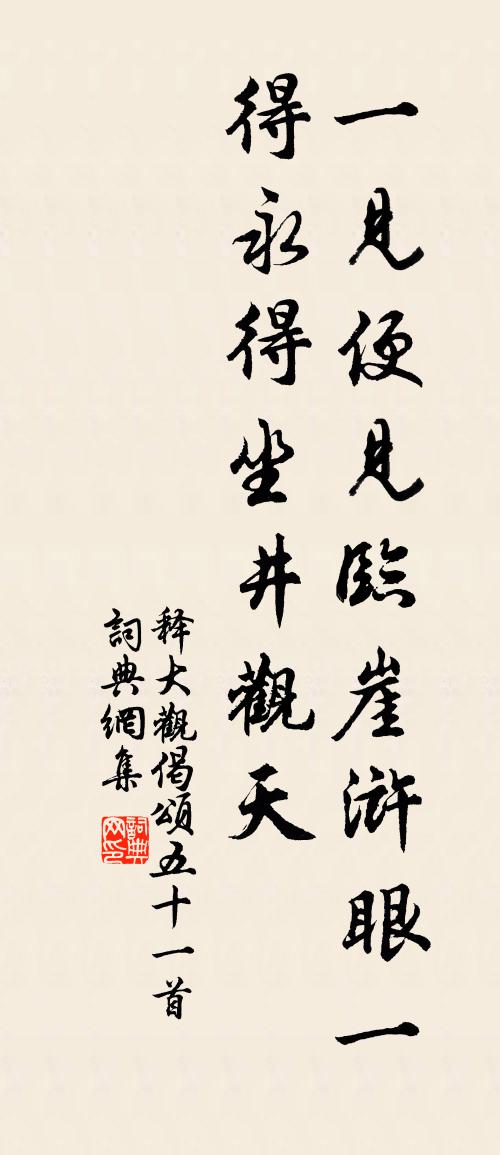 一見便見臨崖滸眼一
得永得坐井觀天
释大觀偈頌五十一首
詞典網集
詞典網印